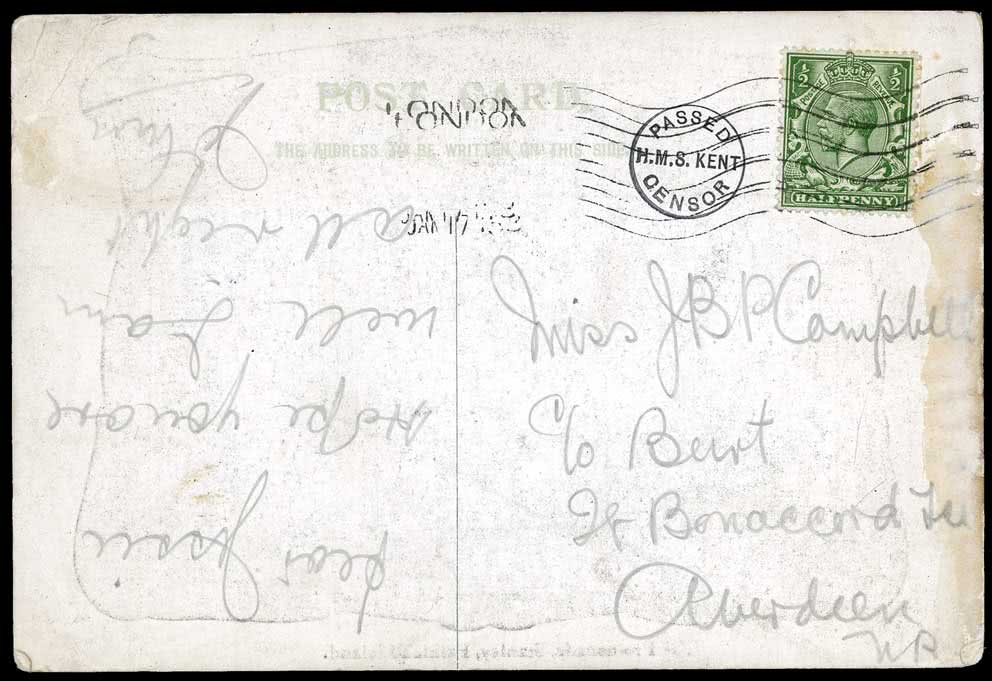 POST CARD
THE ADDRESS TO BE WRITTEN ON THIS SIDE
LONDON
JAN 17
PASSED
H.M.S. KENT
CENSOR
½ ½
POSTAGE REVENUE
HALFPENNY
Dear Jessie
Hope you are
well I am
all right
Miss J B P Campbell
c/o Burt
Bonaccord
Aberdeen
NB
Stanley,